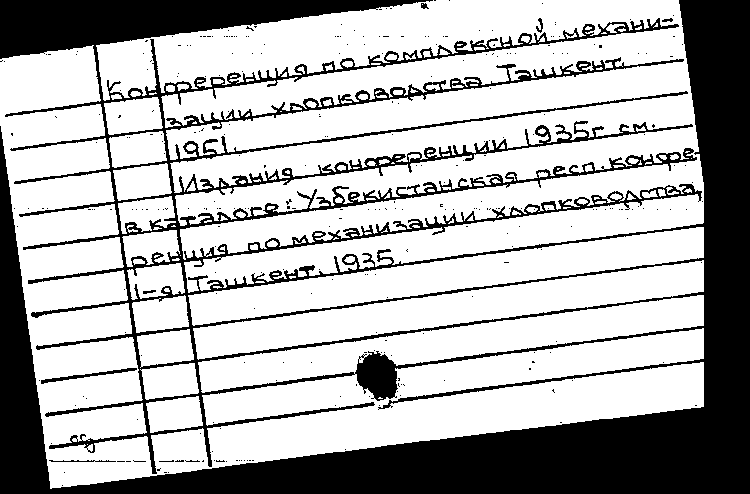 Конференция по комплексной механи-
зации хлопководства. Ташкент.
1951.
Издания конференции 1935г см.
в каталоге: Узбекистанская респ. конфе-
ренция по механизации хлопководства,
1-я. Ташкент. 1935.